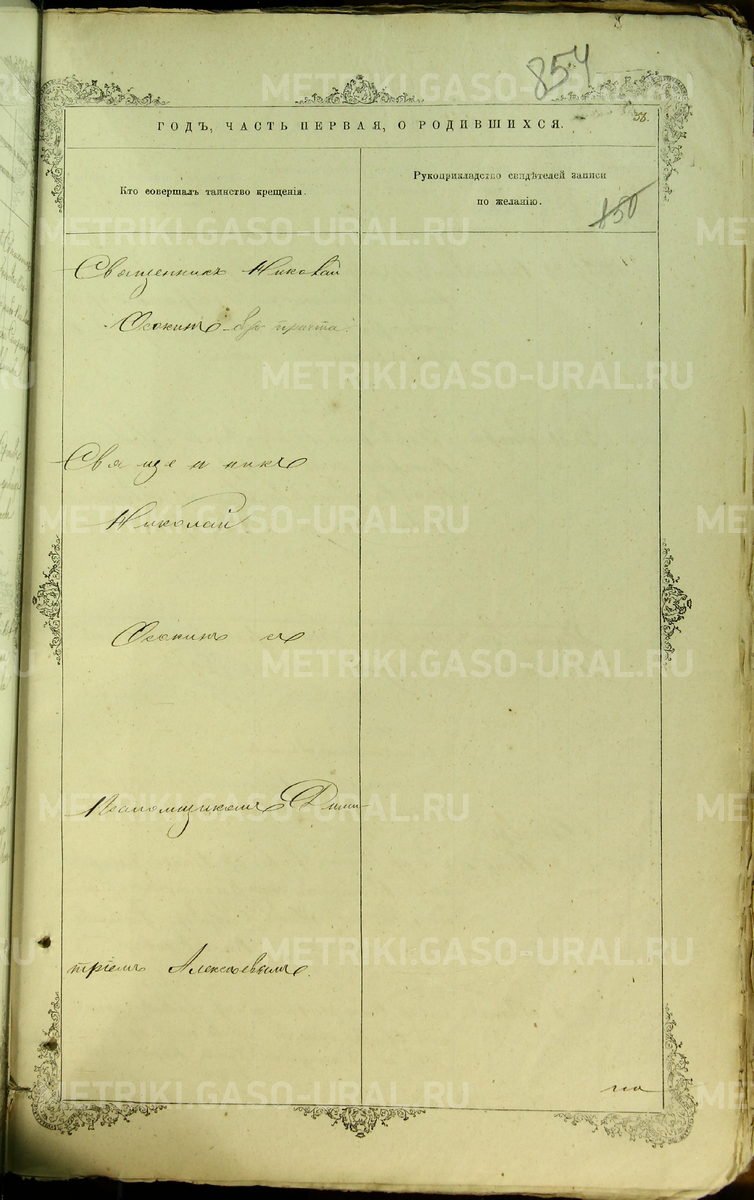 854
ГОДЪ, ЧАСТЬ ПЕРВАЯ, О РОДИВШИХСЯ.
Кто совершалъ таинство крещенія.
Рукоприкладство свидѣтелей записи
по желанію.
850
Священникъ Николай
Осокинъ безъ причта.
Священникъ
Николай
Осокинъ съ
Псаломщикомъ Дими-
тріемъ Алексѣевымъ.
METRIKI.GASO-URAL.RU